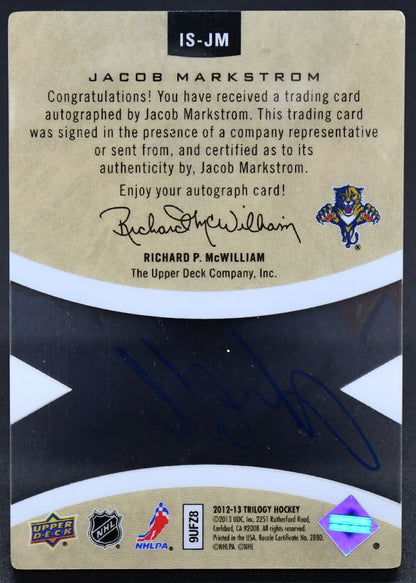 IS-JM
JACOB MARKSTROM
Congratulations! You have received a trading card
autographed by Jacob Markstrom. This trading card
was signed in the presence of a company representative
or sent from, and certified as to its
authenticity by, Jacob Markstrom.
Enjoy your autograph card!
Richard P. McWilliam
RICHARD P. McWILLIAM
The Upper Deck Company, Inc.
UPPER DECK
NHL
NHLPA
9UFZ8
2012-13 TRILOGY HOCKEY
©2013 UDC, Inc. 2251 Rutherford Road,
Carlsbad, CA 92008. All rights reserved.
Printed in the USA. Resale Certificate No. 2880.
©NHLPA ©NHL